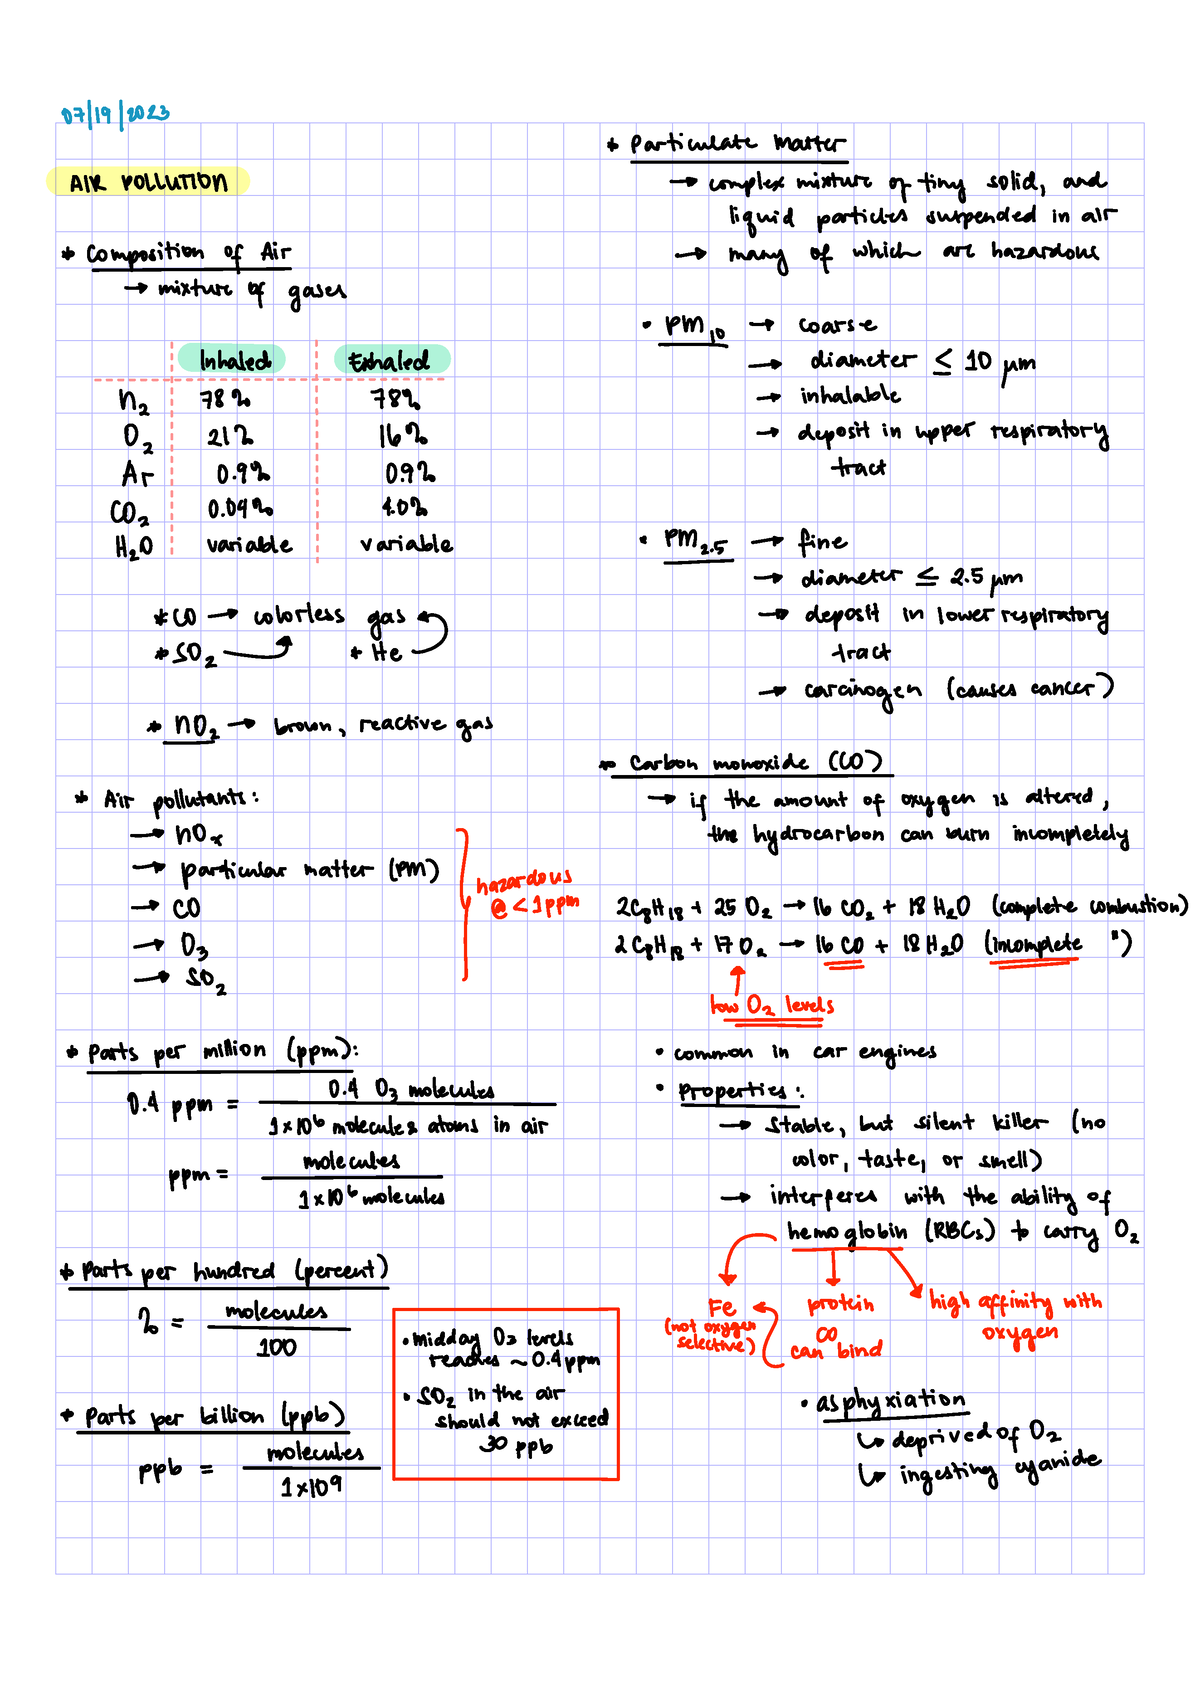 07/19/2023
AIR POLLUTION
* Composition of Air
→ mixture of gases
Inhaled Exhaled
N₂ 78% 78%
O₂ 21% 16%
Ar 0.9% 0.9%
CO₂ 0.04% 4.0%
H₂O variable variable
* CO → colorless gas
* SO₂ * He
* NO₂ → brown, reactive gas
* Air pollutants:
→ NOₓ
→ particular matter (PM)
→ CO
→ O₃
→ SO₂
hazardous
@ < 1ppm
* Parts per million (ppm):
0.4 ppm = 0.4 O₃ molecules
1×10⁶ molecules atoms in air
ppm = molecules
1×10⁶ molecules
* Parts per hundred (percent)
% = molecules
100
* Parts per billion (ppb)
ppb = molecules
1×10⁹
• midday O₃ levels
reaches ~0.4ppm
• SO₂ in the air
should not exceed
30 ppb
* Particulate Matter
→ complex mixture of tiny solid, and
liquid particles suspended in air
→ many of which are hazardous
• PM₁₀ → coarse
→ diameter ≤ 10 μm
→ inhalable
→ deposit in upper respiratory
tract
• PM₂.₅ → fine
→ diameter ≤ 2.5 μm
→ deposit in lower respiratory
tract
→ carcinogen (causes cancer)
* Carbon monoxide (CO)
→ if the amount of oxygen is altered,
the hydrocarbon can burn incompletely
2C₈H₁₈ + 25 O₂ → 16 CO₂ + 18 H₂O (complete combustion)
2C₈H₁₈ + 17 O₂ → 16 CO + 18 H₂O (incomplete ")
low O₂ levels
• common in car engines
• Properties:
→ stable, but silent killer (no
color, taste, or smell)
→ interferes with the ability of
hemoglobin (RBCs) to carry O₂
Fe
(not oxygen
selective)
protein
CO
can bind
high affinity with
oxygen
• asphyxiation
↳ deprived of O₂
↳ ingesting cyanide